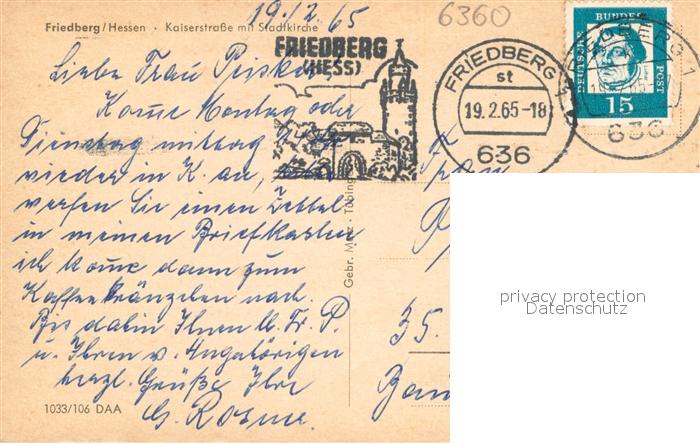 19./2. 65
6360
Friedberg/Hessen · Kaiserstraße mit Stadtkirche
FRIEDBERG
(HESS)
FRIEDBERG
st
19.2.65-18
636
DEUTSCHE BUNDESPOST
15
636
Liebe Frau
Kome Montag oder
Dienstag mittag
wieder in K. an,
werfen Sie einen Zettel
in meinen Briefkasten
ich kome dann zum
Kaffeekränzchen nach.
Bis dahin Ihnen lb. Fr. P.
u. Ihren w. Angehörigen
herzl. Grüße Ihre
G. Rosme.
1033/106 DAA
Gebr. Tübing
Frau
35.
privacy protection
Datenschutz